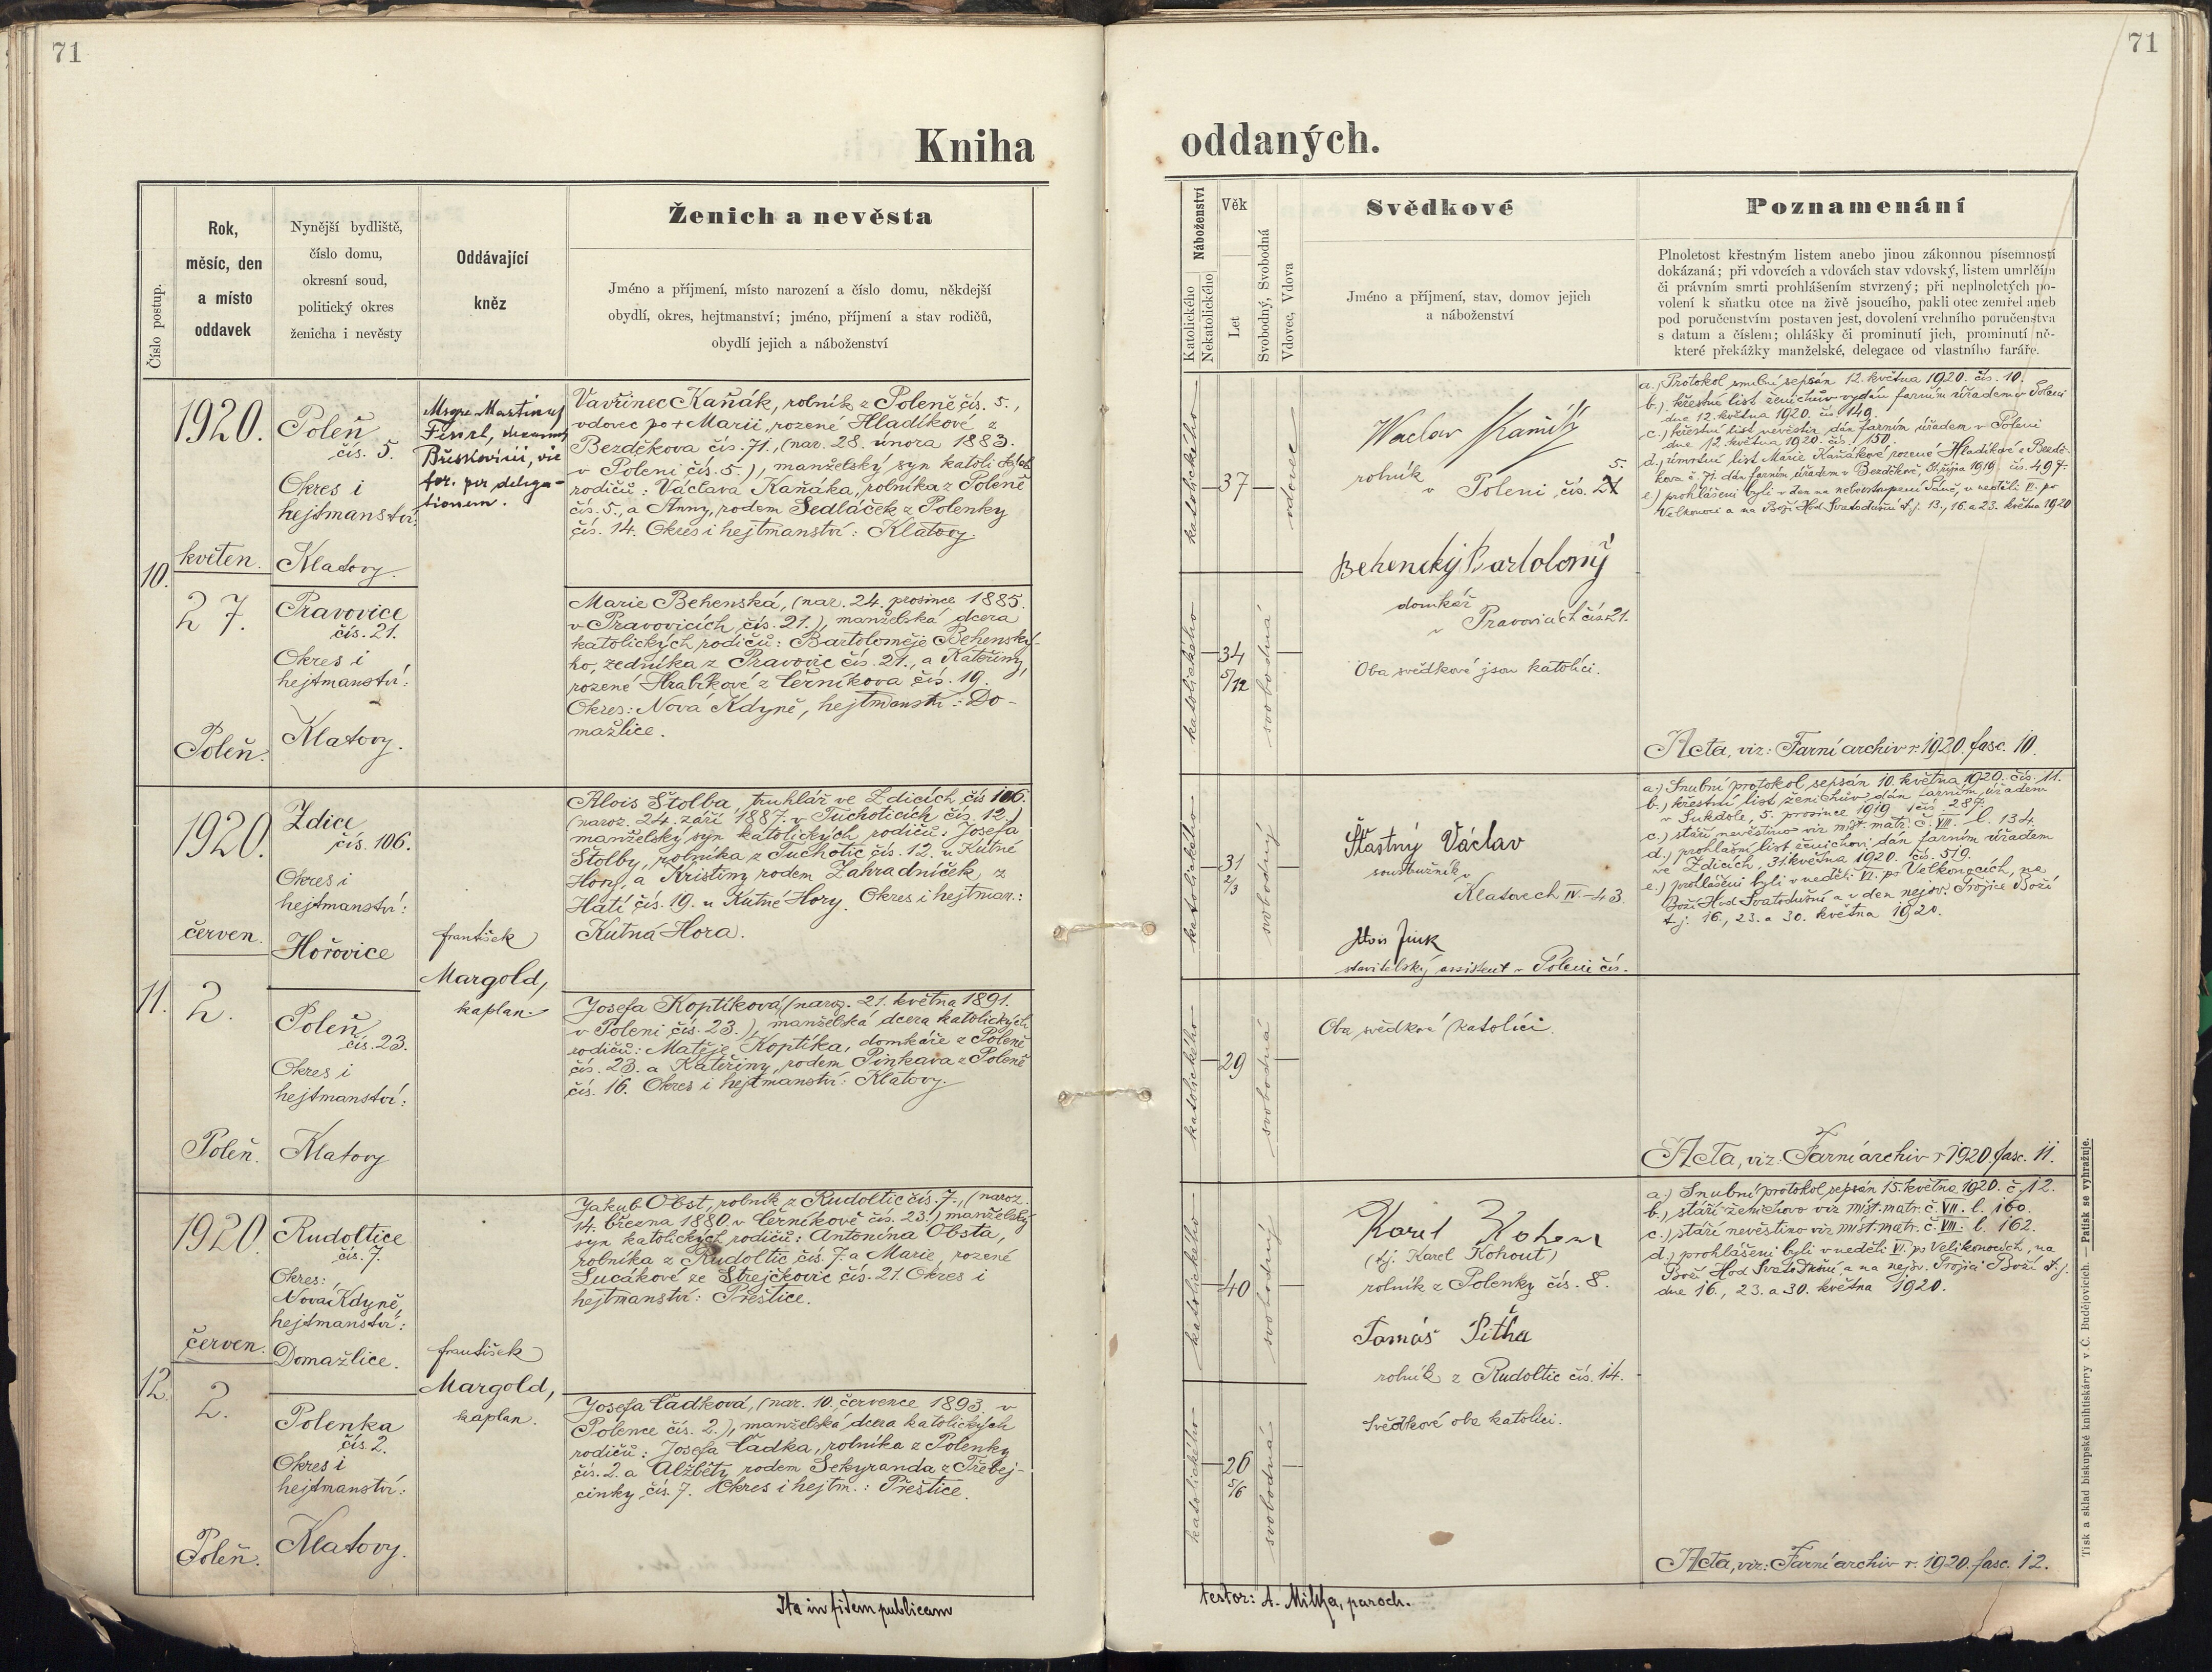 71
71
Kniha
oddaných.
Číslo postup.
Rok,
měsíc, den
a místo
oddavek
Nynější bydliště,
číslo domu,
okresní soud,
politický okres
ženicha i nevěsty
Oddávající
kněz
Ženich a nevěsta
Jméno a příjmení, místo narození a číslo domu, někdejší
obydlí, okres, hejtmanství; jméno, příjmení a stav rodičů,
obydlí jejich a náboženství
Náboženství
Katolického
Nekatolického
Věk
Let
Svobodný, Svobodná
Vdovec, Vdova
Svědkové
Jméno a příjmení, stav, domov jejich
a náboženství
Poznamenání
Plnoletost křestným listem anebo jinou zákonnou písemností
dokázaná; při vdovcích a vdovách stav vdovský, listem umrlčím
či právním smrti prohlášením stvrzený; při neplnoletých po-
volení k sňatku otce na živě jsoucího, pakli otec zemřel aneb
pod poručenstvím postaven jest, dovolení vrchního poručenstva
s datum a číslem; ohlášky či prominutí jich, prominutí ně-
které překážky manželské, delegace od vlastního faráře.
10.
1920.
květen.
27.
Poleň.
Poleň
čís. 5.
Okres i
hejtmanství:
Klatovy.
Pravovice
čís. 21.
Okres i
hejtmanství:
Klatovy.
Msgre Martinus
per delega-
tionem.
Vavřinec Kaňák, rolník z Poleně čís. 5.,
vdovec po + Marii, rozené Hladíkové z
Bezděkova čís. 71., (nar. 28. února 1883.
v Poleni čís. 5.), manželský syn katolických
rodičů: Václava Kaňáka, rolníka z Poleně
čís. 5., a Anny, rodem Sedláček z Polenky
čís. 14. Okres i hejtmanství: Klatovy.
Marie Behenská, (nar. 24. prosince 1885.
v Pravovicích čís. 21.), manželská dcera
katolických rodičů: Bartoloměje Behenské-
ho, zedníka z Pravovic čís. 21., a Kateřiny,
rozené Hrabíkové z Černíkova čís. 19.
Okres: Nová Kdyně, hejtmanstí: Do-
mažlice.
katolického
37
vdovec
katolického
34
5/12
svobodná
Waclav Kaňák
rolník
v Poleni, čís. 5.
Behenský Bartoloměj
domkář
v Pravovicích čís 21.
Oba svědkové jsou katolíci.
a.) Protokol snubní sepsán 12. května 1920. čís. 10.
b.) křestní list ženichův vydán farním úřadem v Poleni
dne 12. května 1920. čís. 149.
c.) křestní list nevěstin dán farním úřadem v Poleni
dne 12. května 1920. čís. 150.
d.) úmrtní list Marie Kaňákové rozené Hladíkové z Bezdě-
kova č. 71. dán farním úřadem v Bezděkově, 31. října 1919 čís. 497.
e.) prohlášeni byli v den na nebevstoupení Páně, v neděli VI. po
Velkonoci a na Boží Hod Svatodušní t. j. 13., 16. a 23. května 1920
Acta, viz: Farní archiv r. 1920. fasc. 10.
11.
1920.
červen.
2.
Poleň.
Zdice
čís. 106.
Okres i
hejtmanství:
Hořovice
Poleň
čís. 23.
Okres i
hejtmanství:
Klatovy
František
Margold,
kaplan.
Alois Štolba, truhlář ve Zdicích čís 106.
(naroz. 24. září 1887. v Tuchoticích čís. 12.)
manželský syn katolických rodičů: Josefa
Štolby, rolníka z Tuchotic čís. 12. u Kutné
Hory, a Kristiny rodem Zahradníček z
Hátí čís. 19. u Kutné Hory. Okres i hejtman.:
Kutná Hora.
Josefa Koptíková, (naroz. 21. května 1891.
v Poleni čís. 23.), manželská dcera katolických
rodičů: Matěje Koptíka, domkáře z Poleně
čís. 23. a Kateřiny, rodem Pinkava z Poleně
čís. 16. Okres i hejtmanství: Klatovy.
katolického
31
2/3
svobodný
katolického
29
svobodná
Šťastný Václav
soustružník v
Klatovech IV.-43.
Alois Jink
stavitelský assistent v Poleni čís.
Oba svědkové katolíci.
a.) Snubní protokol sepsán 10. května 1920. čís. 11.
b.) křestní list ženichův dán farním úřadem
v Sukdole, 5. prosince 1919 čís. 287.
c.) stáří nevěstino viz míst. matr. č. VIII. l. 134.
d.) prohlašní list ženichovi dán farním úřadem
ve Zdicích, 31. května 1920. čís. 519.
e.) prohlášeni byli v neděli VI. po Velkonocích, na
Boží Hod Svatodušní a v den nejsv. Trojice Boží
t. j. 16., 23. a 30. května 1920.
Acta, viz: Farní archiv r 1920. fasc. 11.
12.
1920.
červen.
2.
Poleň.
Rudoltice
čís. 7.
Okres:
Nová Kdyně,
hejtmanství:
Domažlice.
Polenka
čís 2.
Okres i
hejtmanství:
Klatovy.
František
Margold,
kaplan.
Jakub Obst, rolník z Rudoltic čís. 7., (naroz.
14. března 1880. v Černíkově čís. 23.) manželský
syn katolických rodičů: Antonína Obsta,
rolníka z Rudoltic čís. 7. a Marie, rozené
Lucákové ze Strejčkovic čís. 21. Okres i
hejtmanství: Přeštice.
Josefa Čadková, (nar. 10. července 1893. v
Polence čís. 2.), manželská dcera katolických
rodičů: Josefa Čadka, rolníka z Polenky
čís. 2. a Alžběty rodem Sekyranda z Třebej-
cinky čís. 7. Okres i hejtm.: Přeštice.
katolického
40
svobodný
katolického
26
5/6
svobodná
Karel Kohout
(tj. Karel Kohout)
rolník z Polenky čís. 8.
Tomáš Pitha
rolník z Rudoltic čís. 14.
Svědkové oba katolíci.
a.) Snubní protokol sepsán 15. května 1920. č. 12.
b.) stáří ženichovo viz míst. matr. č. VII. l. 160.
c.) stáří nevěstino viz míst. matr. č. VIII. l. 162.
d.) prohlášeni byli v neděli VI. po Velikonocích, na
Boží Hod Svatodušní a na nejsv. Trojici Boží t. j.
dne 16., 23. a 30. května 1920.
Acta, viz: Farní archiv r. 1920. fasc. 12.
Ita in fidem publicam
testor: A. Milka, paroch.
Tisk a sklad biskupské knihtiskárry v Č. Budějovicích. — Patisk se vyhražuje.